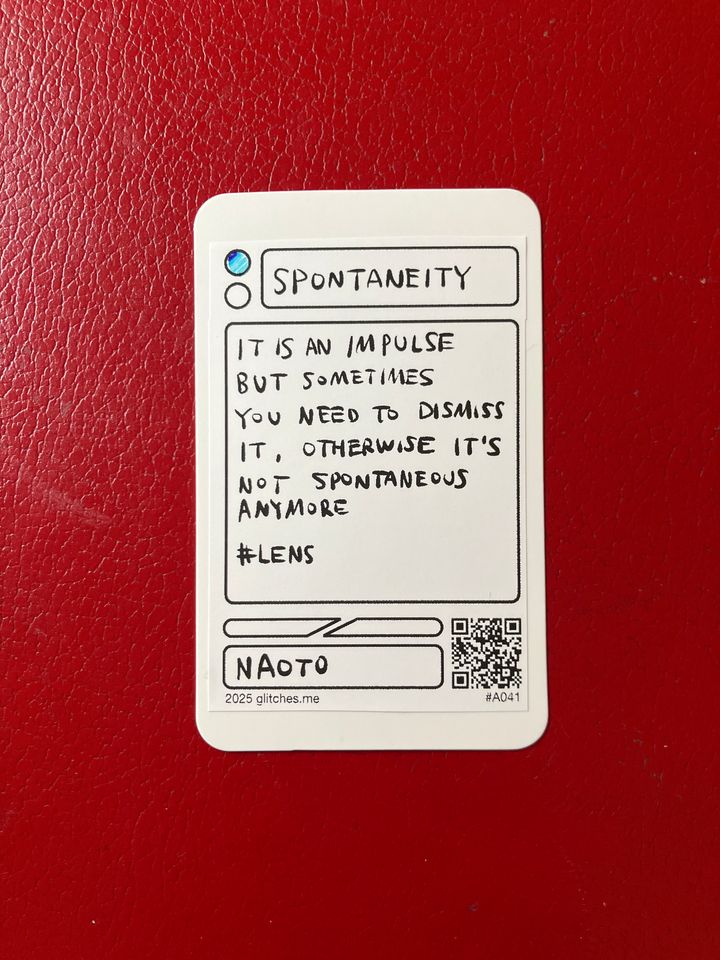 SPONTANEITY
IT IS AN IMPULSE
BUT SOMETIMES
YOU NEED TO DISMISS
IT, OTHERWISE IT'S
NOT SPONTANEOUS
ANYMORE
#LENS
NAOTO
2025 glitches.me
#A041